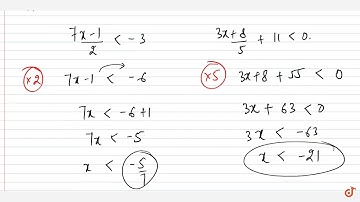 7x-1/2 < -3
×2 7x-1 < -6
7x < -6+1
7x < -5
x < -5/7
3x+8/5 + 11 < 0.
×5 3x+8 + 55 < 0
3x + 63 < 0
3x < -63
x < -21